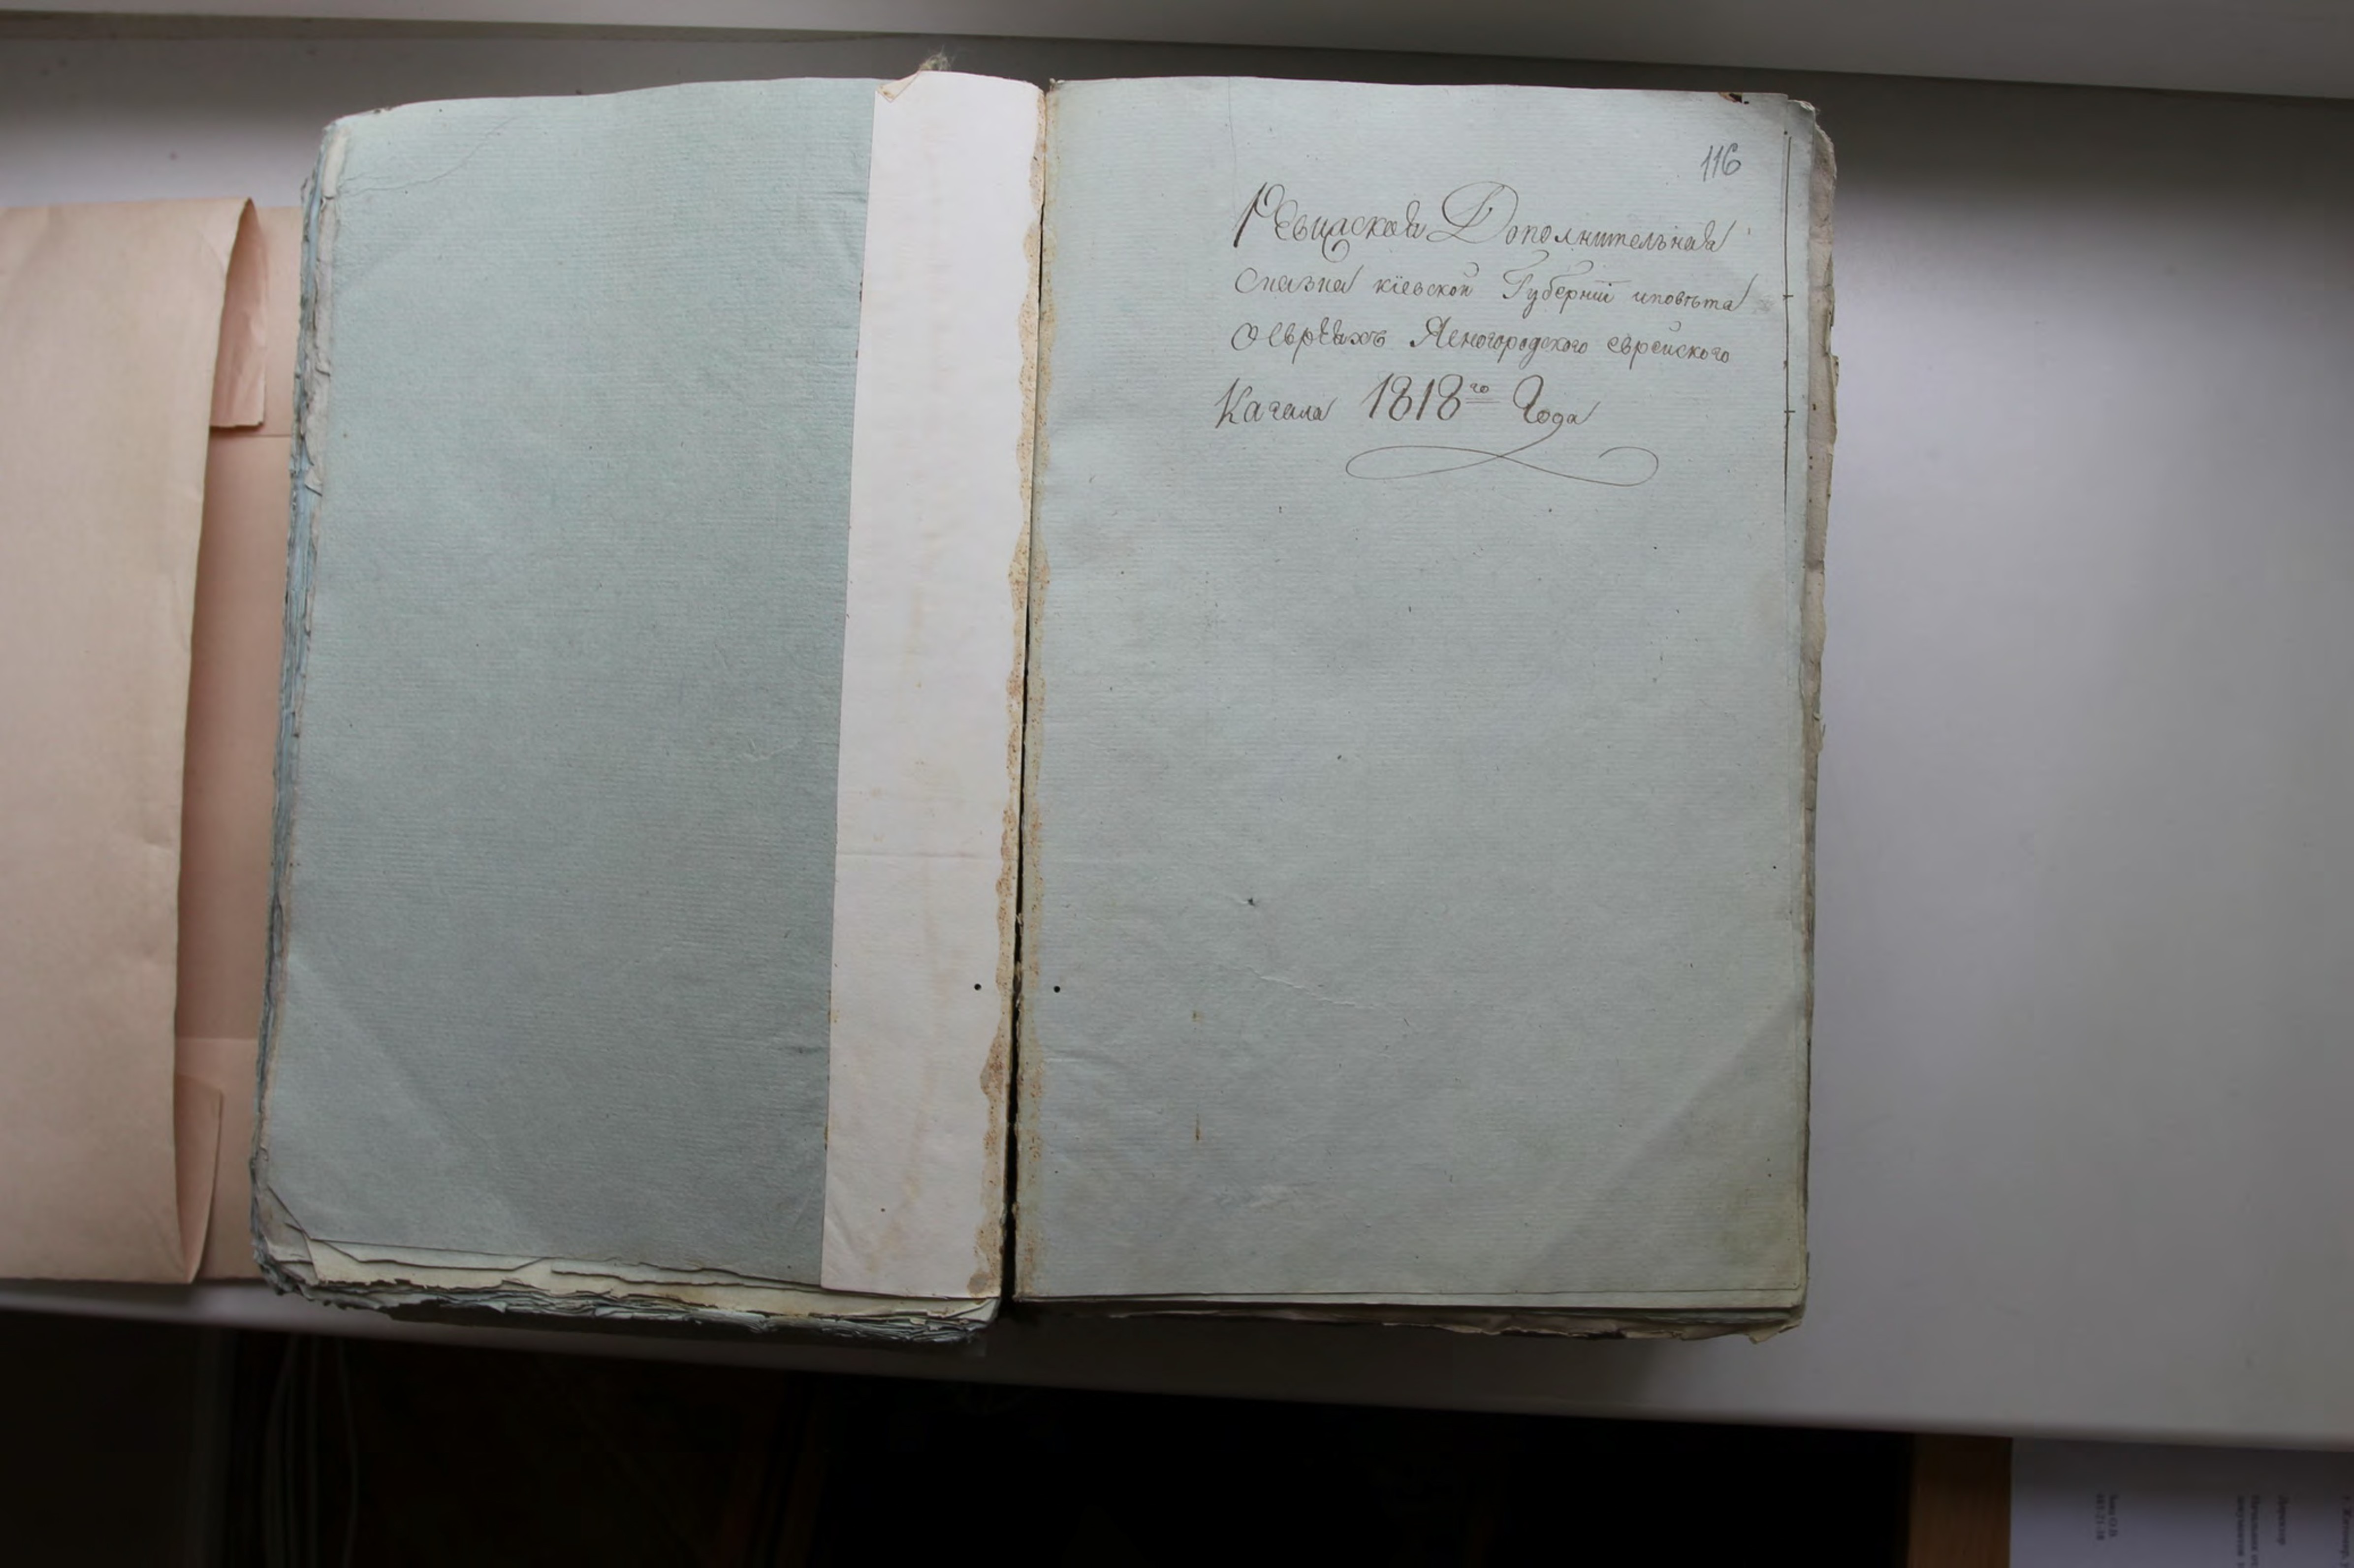 116
Ревизская Дополнительная
сказка кіевской Губерніи иповѣта
О Евреяхъ Ясногородского еврейского
Кагала 1818го Года